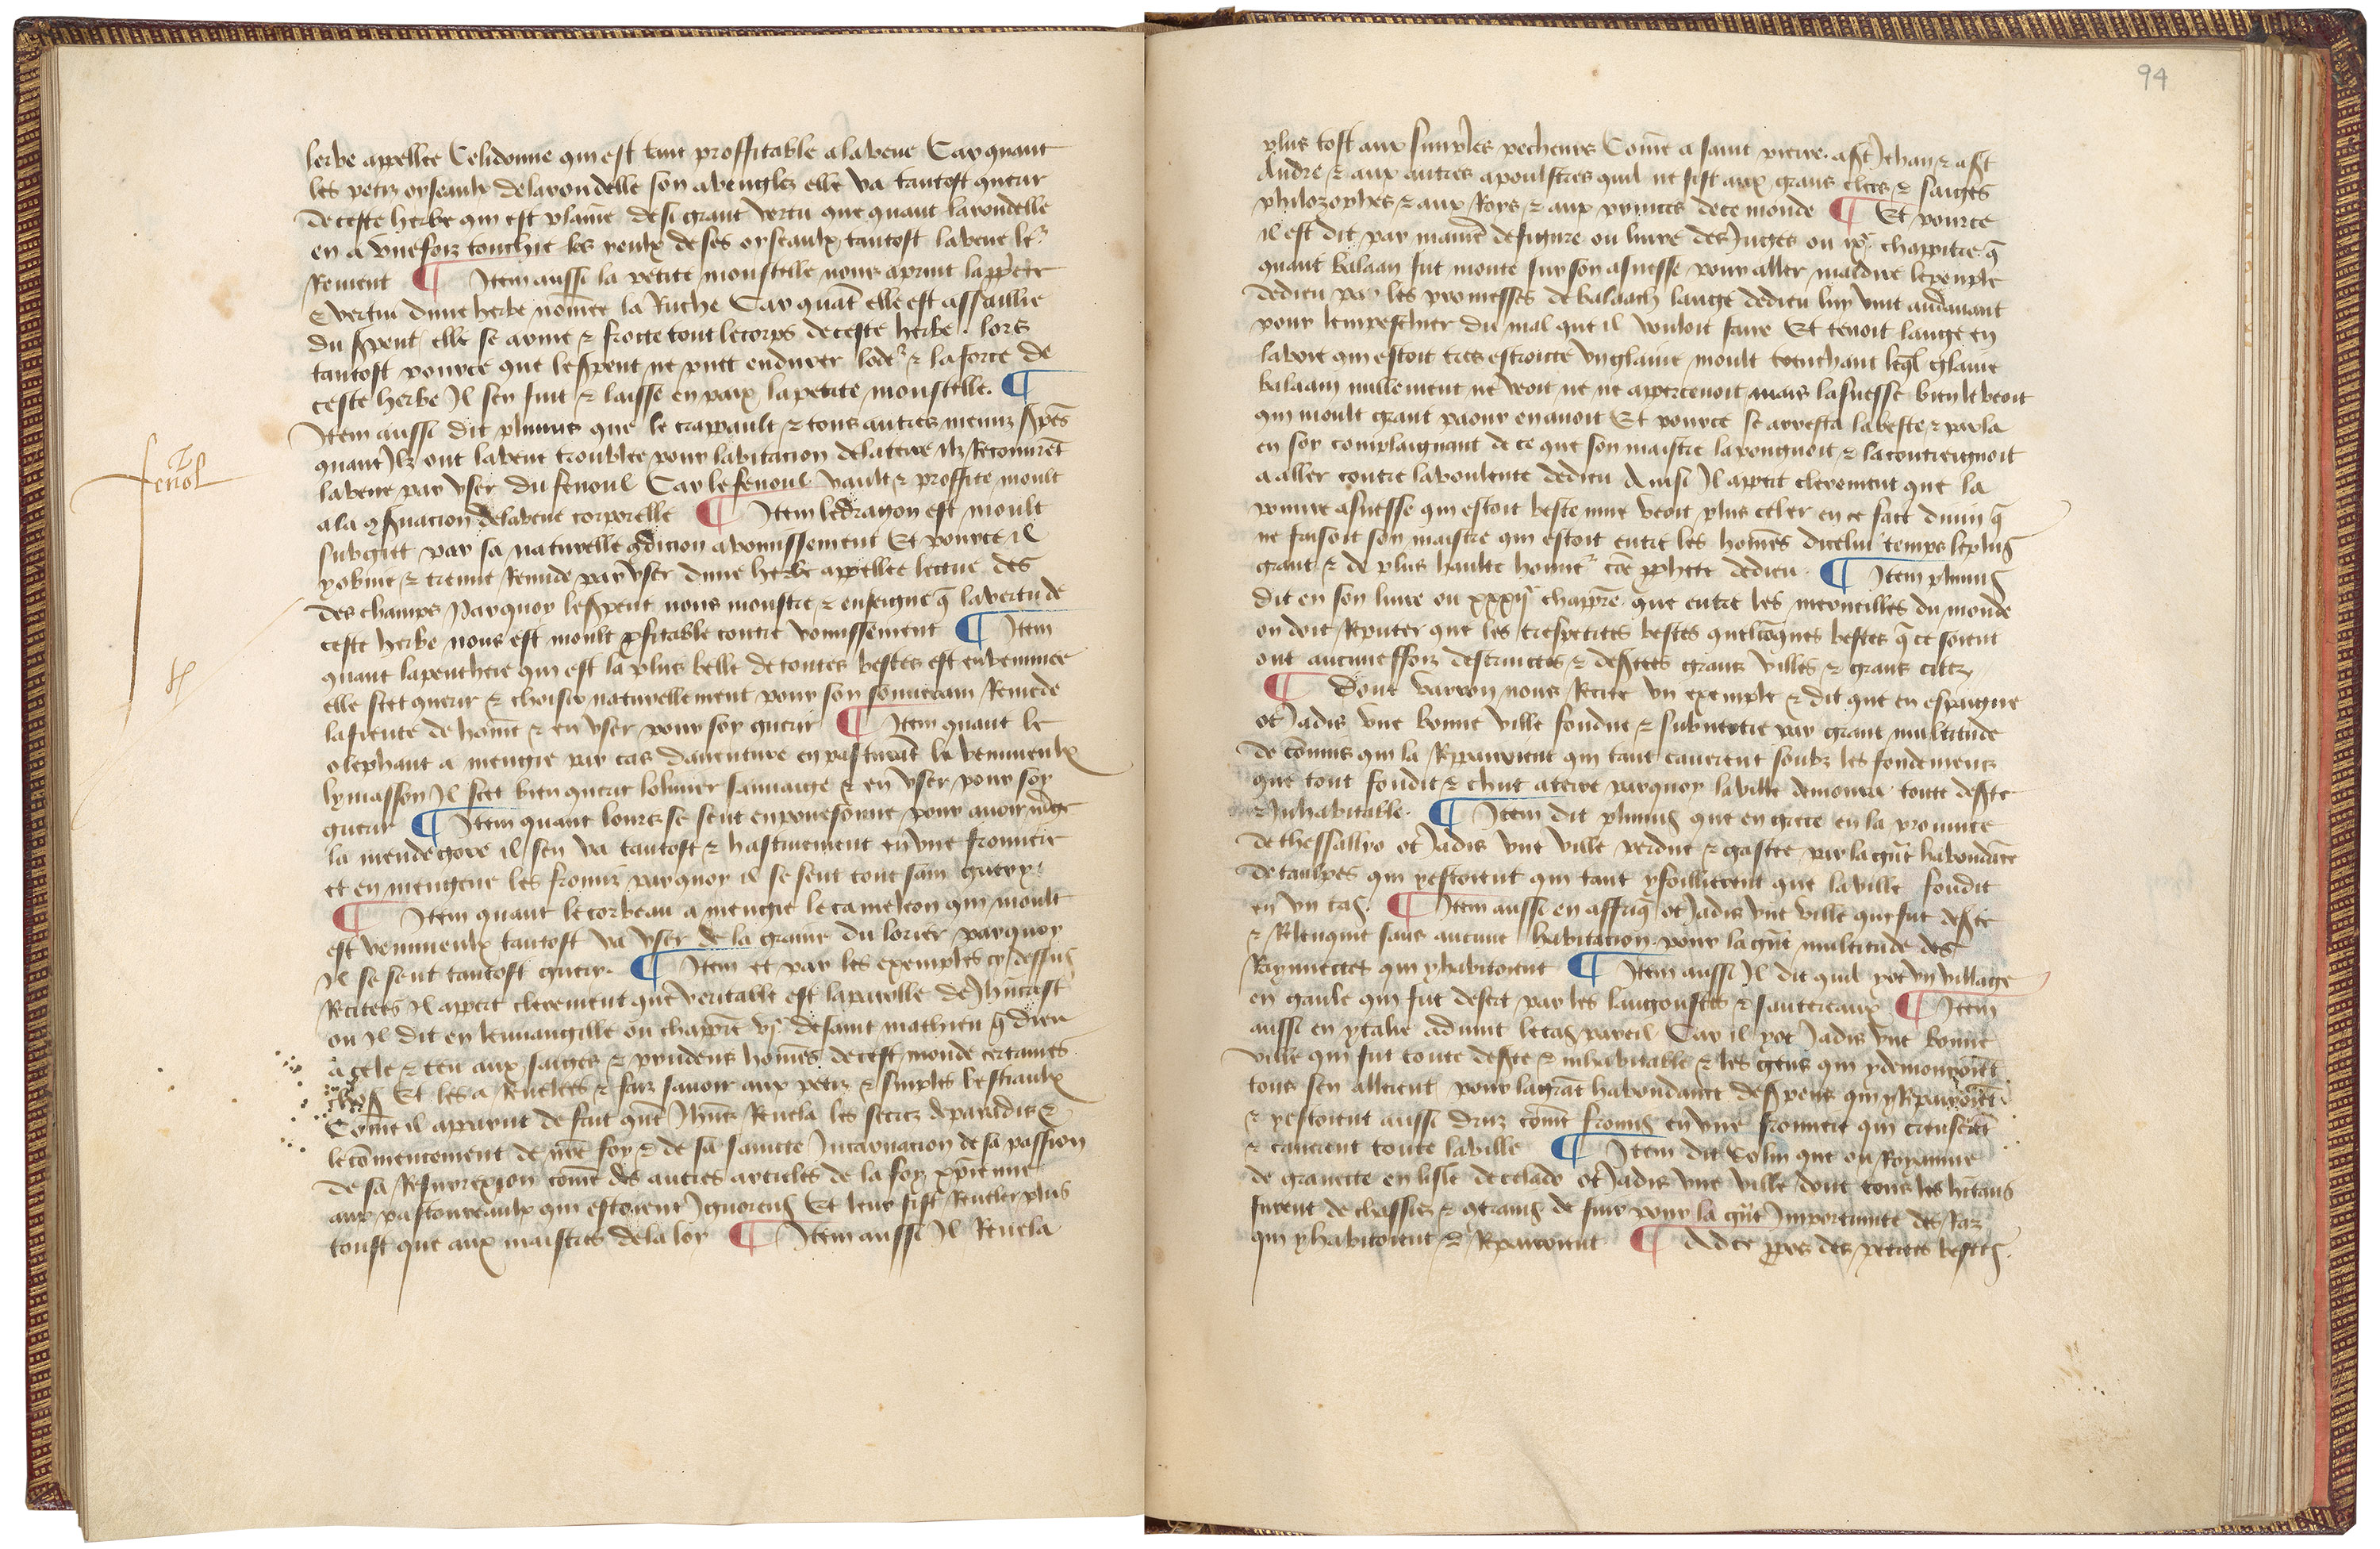 lerbe appellee Celidonne qui est tant proffitable a la veue Car quant
les petiz oyseaulx de larondelle son avenglez elle va tantost querir
de ceste herbe qui est plaine de si grant vertu que quant larondelle
en a vnefoiz touchie les yeulx de ses oyseaulx tantost la veue le2
Revient ¶ Item aussi la petite moustelle nous aprint
vertu dune herbe nōmee la Ruche Car quāt elle est assaillie
du s̄pent elle se arme & frotte tout le corps de ceste herbe. lors
tantost pource que le s̄pent ne puet endurer lode2 & la force de
ceste herbe Il sen fuit & laisse en paix la petite moustelle. ¶
Item aussi dit plinius que le crappault & tous autres menuz s̄pēs
quant Ilz ont la veue troublee pour labitacion de la terre Ilz Recouurēt
la veue par vser du fenoul Car le fenoul vault & proffite moult
a la 9s̄uacion de la veue corporelle ¶ Item le dragon est moult
subgiet par sa naturelle 9dicion a vomissement Et pource il
y obuie & treuue Remide par vser dune herbe appellee lectue des
des champs Par quoy le s̄pent nous monstre & enseigne q̄ la vertu de
ceste herbe nous est moult p̄fitable contre vomissement ¶ Item
quant la penthere qui est la plus belle de toutes bestes est enuenimee
elle scet querir & choisir naturellement pour son souuerain Remede
la fiente de hom̄e & en vser pour soy guerir ¶ Item quant le
olephant a mengie par cas dauenture en pasturāt le venimeulx
lymasson Il scet bien querir loliuier sauuaige & en vser pour soy
guerir ¶ Item quant lours se sent enpoesonne pour auoir māge
la mendegore il sen va tantost & hastiuement en vne fromiere
et en mengeue les fromiz par quoy il se sent tout sain guery.
¶ Item quant le corbeau a mengie le cameleon qui moult
est venimeulx tantost va vser de la graine du lorier par quoy
Il se sent tantost guery. ¶ Item et par les exemples cy dessus
Recitees Il appert clerement que veritable est la parolle de Ihūcrist
ou Il dit en leuuangille ou chappr̄e vj.e de saint mathieu q̄ dieu
a cele & teu aux saiges & prudens hōmes de cest monde certaines
choses Et les a Reuelees & faiz sauoir aux petiz & simples bestiaulx
Com̄e il apparut de fait que Ihūs Reuela les secrez de paradis &
le cōmencement de nr̄e foy & de sa saincte Incarnacion de sa passion
de sa Resurrexion com̄e des autres articles de la foy xp̄ienne
aux pastoureaulx qui estoient Ignorens Et leur fist Reueler plus
toust que aux maistres de la loy ¶ Item aussi Il Reuela
fenol
94
plus tost aux simples pecheurs Com̄e a saint pierre. a s̄t Iehan & a s̄t
Andre & aux autres apoulstres quil ne fist aux grans clers & saiges
philozophes & aux Roys & aux princes de ce monde ¶ Et pource
il est dit par manie͂ de figure ou liure des Iuges ou ixe. chappitre. q̄
quant balaan fut monte sur son asnesse pour aller mauldire le peuple
de dieu par les promesses de balaach lange de dieu luy vint audeuant
pour lempescher du mal que il vouloit faire Et tenoit lange en
la voie qui estoit tres estroicte vn glaiue moult trenchant leq̄l glaiue
balaam nullement ne veoit ne ne apperceuoit mais lasnesse bien le veoit
qui moult grant paour en auoit Et pource se arresta la beste & parla
en soy complaignant de ce que son maistre la pongnoit & la contreignoit
a aller contre la voulente de dieu Ainsi Il appert clerement que la
poure asnesse qui estoit beste mue veoit plus cler en ce fait diuin q̄
ne faisoit son maistre qui estoit entre les hom̄es dicelui temps le plus
grant & de plus haulte honne2 cōe pp̄hete de dieu. ¶ Item plinius
dit en son liure ou xxxije chappr̄e. que entre les merueilles du monde
on doit Reputer que les tres petites bestes quelcōques bestes q̄ ce soient
ont aucuneffoiz destruictes & des̄tees grans villes & grans citez
¶ Dont varron nous Recite vn exemple & dit que en espaigne
ot Iadis vne bonne ville fondue & subuertie par grant multitude
de cōnins qui la Repairoient qui tant cauerent soubz les fondemens
que tout fondit & chut a terre par quoy la ville demoura toute des̄te
& Inhabitable. ¶ Item dit plinius que en grece en la prouince
de thessallye ot Iadis vne ville perdue & gastee par la gr̄t habondāce
de taulpes qui y estoient qui tant y foillierent que la ville fondit
en vn tas. ¶ Item aussi en affriq̄ ot Iadis vne ville qui fut des̄te
& Relenquie sans aucune habitacion pour la gr̄t multitude des
Raynnettes qui y habitoient ¶ Item aussi Il dit quil y ot vn village
en gaule qui fut desert par les langoustes & sautereaux ¶ Item
aussi en ytalie aduint le cas pareil Car il y ot Iadis vne bonne
ville qui fut toute des̄te & inhabitable & les gens qui y demouroiēt
tous sen allerent pour la grāt habondance de s̄pens qui y Repairoiēt
& y estoient aussi druz com̄e fromis en vne fromiere qui creuserēt
& cauerent toute la ville ¶ Item dit Solin que ou Royaume
de grauete en lisle de celade ot Iadis vne ville dont tous les hītans
furent dechassiez & 9trains de fuir pour la gr̄t Importunite des Raz
qui y habitoient & Repairoient ¶ Ad ce p̄pos des petites bestes.